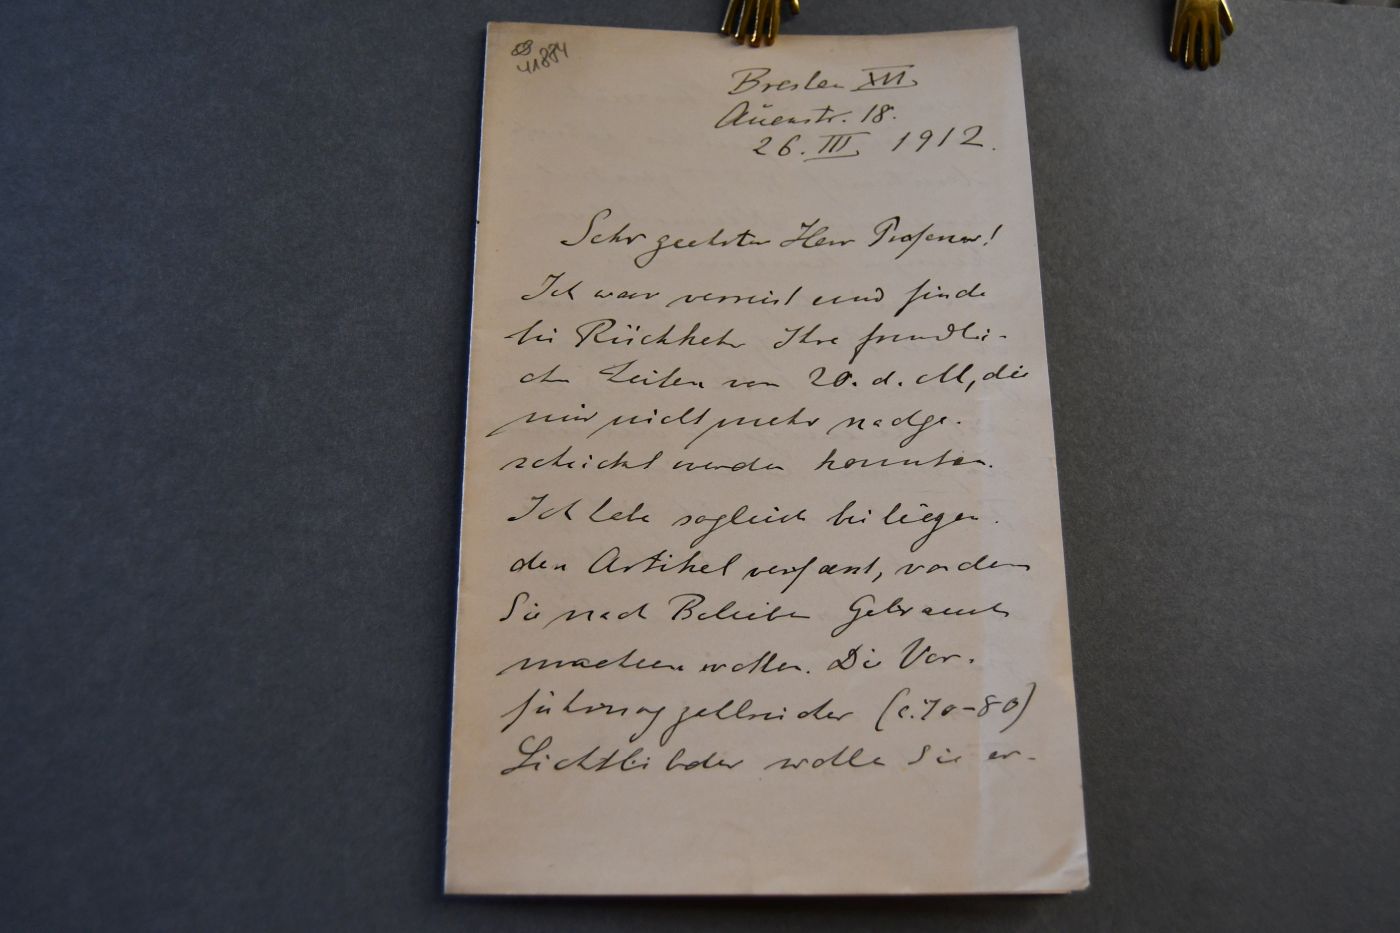 41884
Breslau XIII
Auenstr. 18.
26. III 1912.
Sehr geehrter Herr Professor!
Ich war verreist und finde
bei Rückkehr Ihre freundli-
chen Zeilen vom 20. d. M, die
mir nicht mehr nachge-
schickt werden konnten.
Ich habe sogleich beiliegen-
den Artikel verfasst, von dem
Sie nach Belieben Gebrauch
machen wollen. Die Vor-
führung zahlreicher (c. 70-80)
Lichtbilder wollen Sie er-